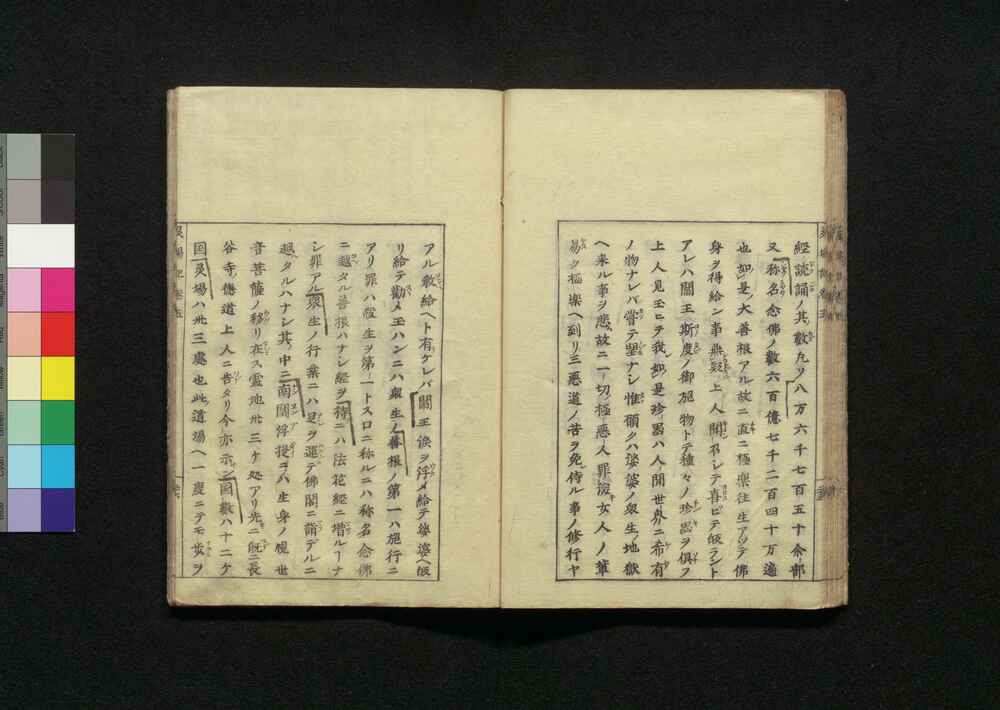 経読誦ノ其ノ数凡ソ八万六千七百五十余部
又称名念佛ノ数六百億七千二百四十万遍
也如是ノ大善根アル故ニ直ニ極楽往生アツテ佛
身ヲ得給ン事無疑上人聞召シテ喜ビテ皈ラント
アレハ閻王斯度ノ御施物トテ種々ノ珍器ヲ倶フ
上人見玉ヒテ我如是珍器ハ人間世界ニ希有
ノ物ナレバ嘗テ望ナシ惟願クハ娑婆ノ衆生ノ地獄
ヘ来ル事ヲ悲故ニ一切極悪人罪深女人ノ輩
易ク極楽ヘ到リ三悪道ノ苦ヲ免待ル事ノ修行ヤ
アル教給ヘト有ケレバ閻王涙ヲ浮メ給テ娑婆ヘ皈
リ給テ勧メ玉ハンニハ衆生ノ善根ノ第一ハ施行ニ
アリ罪ハ殺生ヲ第一トス口ニ称ルニハ称名念佛
ニ越タル善根ハナシ経ヲ持ニハ法花経ニ増ルーナ
シ罪アル衆生ノ行業ニハ足ヲ運テ佛閣ニ詣デルニ
越タルハナシ其ノ中ニ南閻浮提ニハ生身ノ観世
音菩薩ノ移リ在ス霊地卅三ケ処アリ先ニ既ニ長
谷寺ノ徳道上人ニ告タリ今亦示ン国数ハ十二ケ
国灵場ハ卅三處也此道場ヘ一度ニテモ歩ヲ